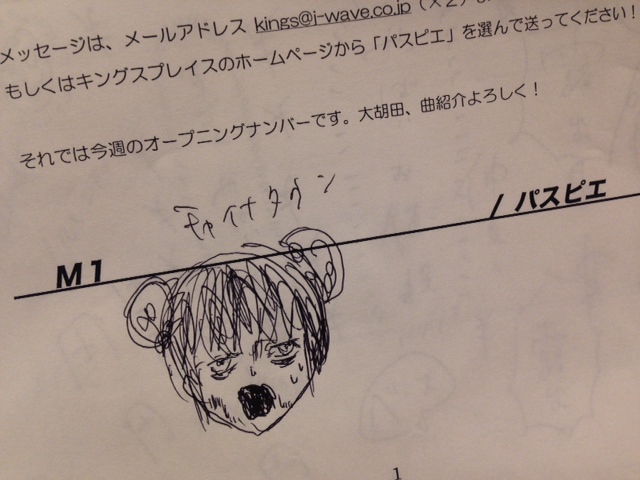 メッセージは、メールアドレス kings@j-wave.co.jp（×2）
もしくはキングスプレイスのホームページから「パスピエ」を選んで送ってください！
それでは今週のオープニングナンバーです。大胡田、曲紹介よろしく！
チャイナタウン
M1 / パスピエ
1